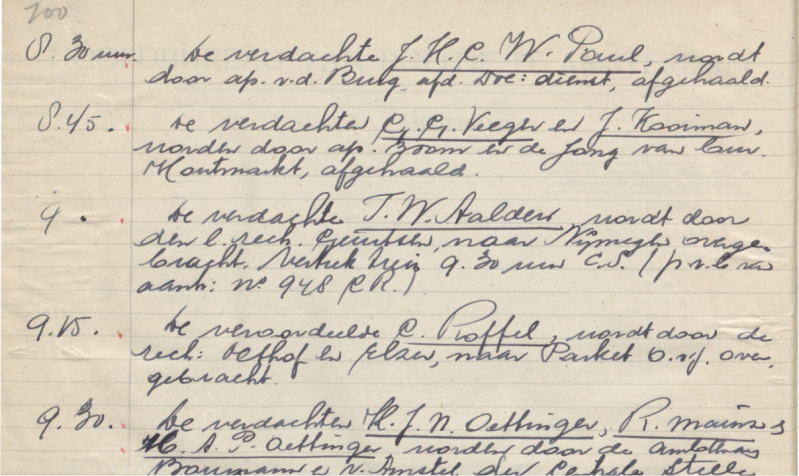 200
8.30 uur. De verdachte J. H. C. W. Paul, wordt
door ap. v.d. Burg, afd. Doc: dienst, afgehaald.
8.45. De verdachten G. G. Veeger en J. Kooiman,
worden door ap. Boom en de Jong van bur.
Houtmarkt, afgehaald.
9. De verdachte T. W. Aalders, wordt door
den l. rech. Geurtsen, naar Nijmegen overge-
bracht. Vertrek trein 9.30 uur C.S. (p.v.b. van
aanh: No 948 C.R.)
9.15. De veroordeelde C. Roffel, wordt door de
rech: Olthof en Elzer, naar Parket O.v.J. over-
gebracht.
9.30. De verdachten H. J. N. Oettinger, R. Mainz &
H. A. P. Oettinger, worden door de ambtenaar
Baumann e v. Amstel der Centrale Stelle